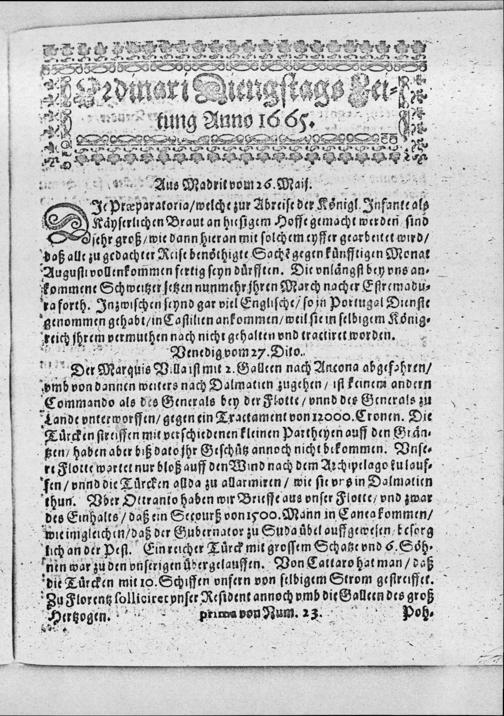 Ordinari Diengstags Zei-
tung Anno 1665.
Aus Madrit vom 26. Maij.
DIe Præparatoria/welche zur Abreise der Königl. Infante als
Käyserlichen Braut an hiesigem Hoffe gemacht werden sind
sehr groß/wie dann hieran mit solchem eyffer gearbeitet wird/
daß alle zu gedachter Reise benöthigte Sachē gegen künfftigen Monat
Augusti vollenkommen fertig seyn dürfften. Die vnlängst bey vns an-
kommene Schweitzer setzen nunmehr jhren March nacher Estremadu-
ra forth. Inzwischen seynd gar viel Englische/so in Portugal Dienste
genommen gehabt/in Castilien ankommen/weil sie in selbigem König-
reich jhrem vermuthen nach nicht gehalten vnd tractiret worden.
Venedig vom 27. Dito.
Der Marquis Villa ist mit 2. Galleen nach Ancona abgefahren/
vmb von dannen weiters nach Dalmatien zugehen/ist keinem andern
Commando als des Generals bey der Flotte/vnnd des Generals zu
Lande vnterworffen/gegen ein Tractament von 12000. Cronen. Die
Türcken streiffen mit verschiedenen kleinen Partheyen auff den Grän-
tzen/haben aber biß dato jhr Geschütz annoch nicht bekommen. Vnse-
re Flotte wartet nur bloß auff den Wind nach dem Archipelago zu lauf-
fen/vnnd die Türcken allda zu allarmiren/wie sie vns in Dalmatien
thun. Vber Ottranto haben wir Brieffe aus vnser Flotte/vnd zwar
des Einhalts/daß ein Secourß von 1500. Mann in Canea kommen/
wie imgleichen/daß der Gubernator zu Suda übel auffgewesen/besorg
lich an der Pest. Ein reicher Türck mit grossem Schatze vnd 6. Söh-
nen war zu den vnserigen übergelauffen. Von Cattaro hat man/daß
die Türcken mit 10. Schiffen vnsern von selbigem Strom gestreiffet.
Zu Florentz solliciret vnser Resident annoch vmb die Galleen des groß
Hertzogen. prima von Num. 23. Poh-